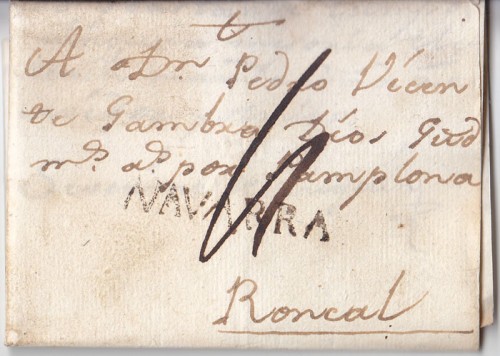 A Dn Pedro Vicen
te Gambra Dios Gud
ms as por Pamplona
NAVARRA
Roncal